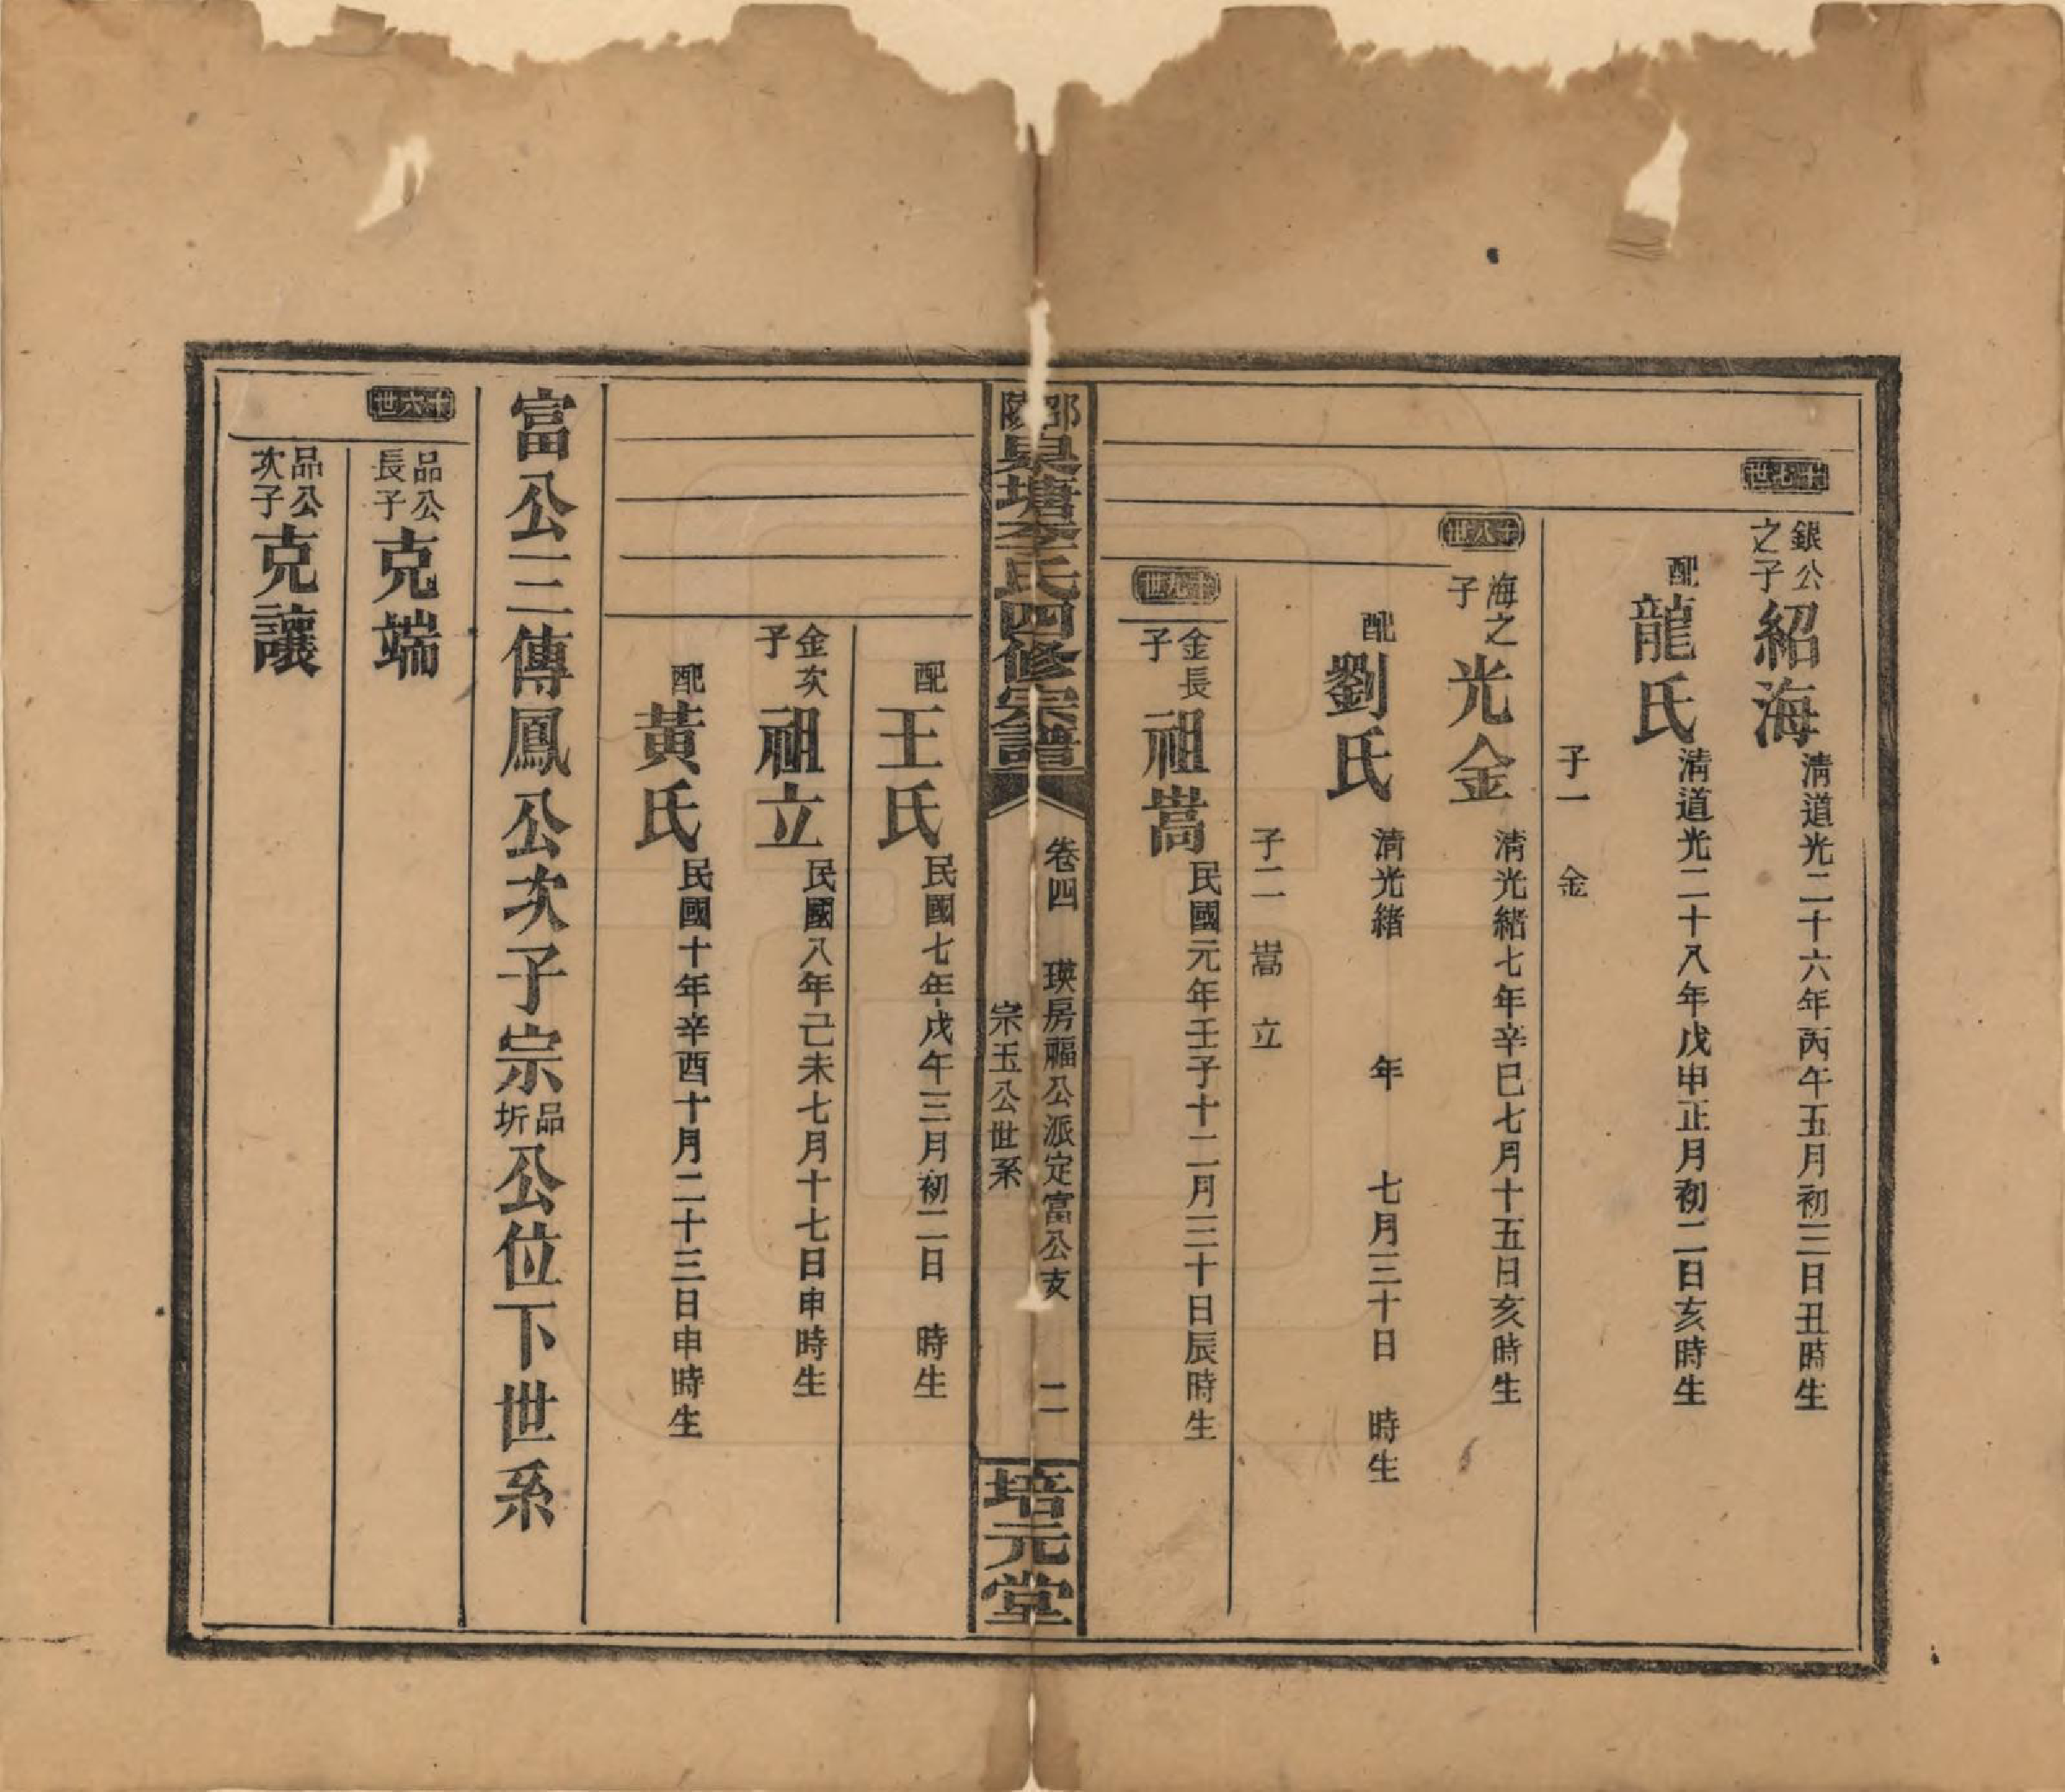 十七世
銀公之子
紹海
清道光二十六年丙午五月初三日丑時生
配龍氏
清道光二十八年戊申正月初二日亥時生
子一 金
十八世
海之子
光金
清光緒七年辛巳七月十五日亥時生
配劉氏
清光緒 年 七月三十日 時生
子二 嵩 立
十九世
金長子
祖嵩
民國元年壬子十二月三十日辰時生
邵陵杲塘李氏四修宗譜
卷四 瑛房福公派定富公支 二
宗玉公世系
培元堂
配王氏
民國七年戊午三月初二日 時生
金次子
祖立
民國八年己未七月十七日申時生
配黃氏
民國十年辛酉十月二十三日申時生
富公三傳鳳公次子宗品圻公位下世系
十六世
品公長子
克端
品公次子
克讓